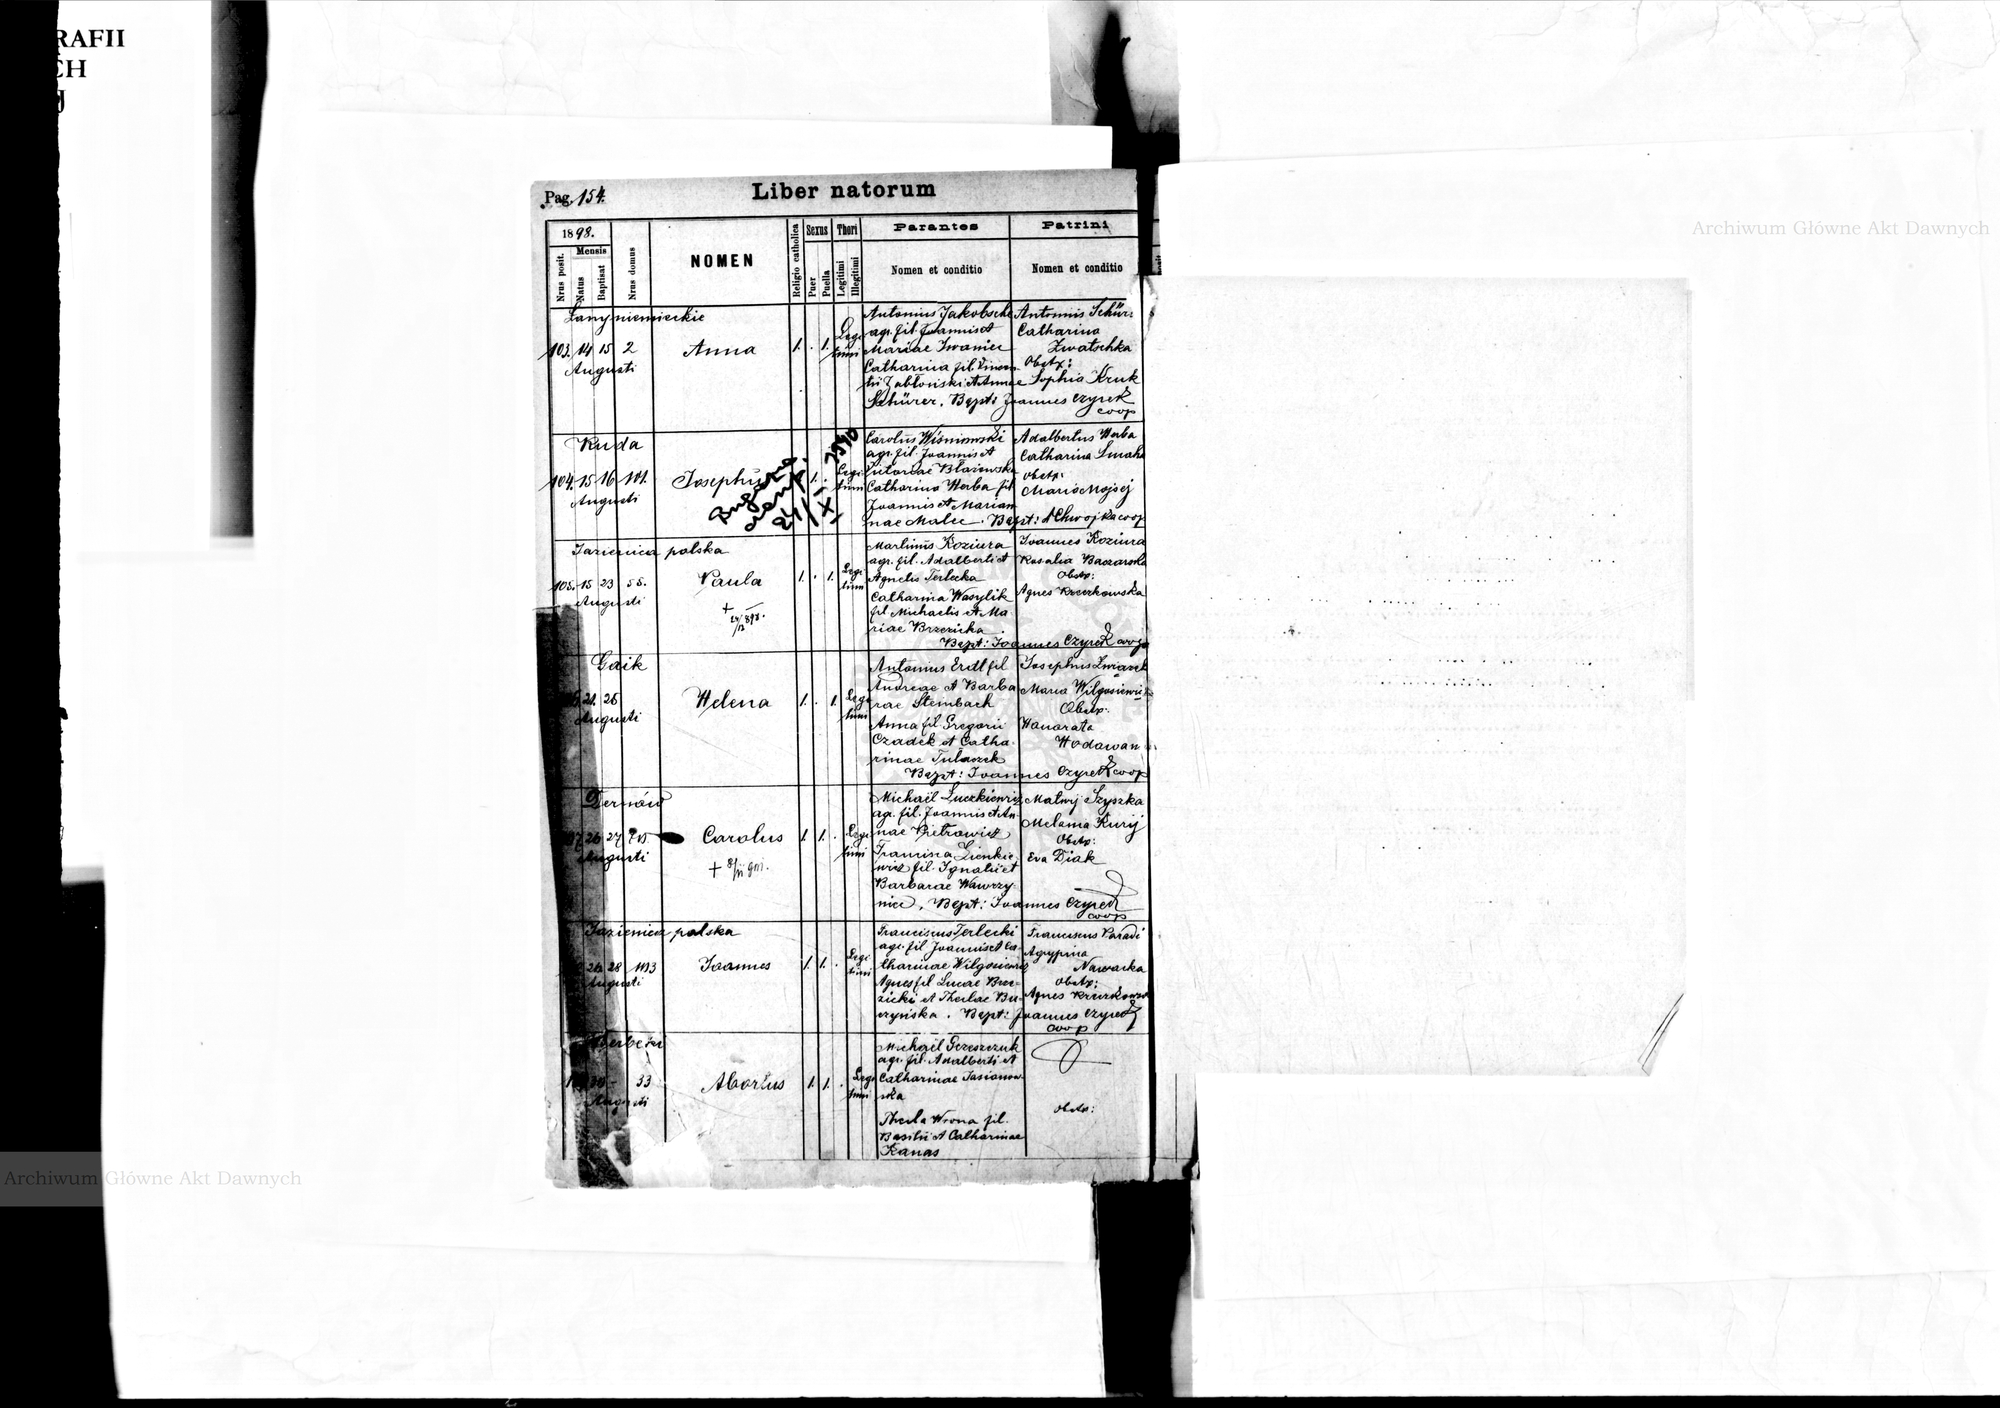 RAFII
Archiwum Główne Akt Dawnych
Pag. 154.
Liber natorum
1898.
Mensis
Nrus posit.
Natus
Baptisat
Nrus domus
NOMEN
Religio catholica
Sexus
Puer
Puella
Thori
Legitimi
Illegitimi
Parentes
Nomen et conditio
Patrini
Nomen et conditio
Łany niemieckie
103. 14 15 2
Augusti
Anna
1. . 1.
Legi
timi
Antonius Jakobsche
agr. fil. Joannis et
Mariae Iwaniec
Catharina fil.
Jabłoński et Annae
Schürer. Bapt: Joannes Czyrek
coop
Antonius Schürer
Catharina
Zwatschka
Obstx:
Sophia Kruk
Ruda
104. 15 16 101.
Augusti
Josephus
1.
Legi
timi
24/XI 1940
Carolus Wiśniowski
agr. fil. Joannis et
Victoriae Błażewska
Catharina Herba fil
Joannis et Marian
nae Malec. Bapt: A Chwojka coop
Adalbertus Herba
Catharina Smaha
Obstx:
Maria Mojsej
Jazienica polska
105. 15 23 55.
Augusti
Paula
+
24/12 898.
1. . 1.
Legi
timi
Martinus Koziura
agr. fil. Adalberti et
Agnetis Terlecka
Catharina Wasylik
fil Michaelis et Ma
riae Brzezicka
Bapt: Joannes Czyrek coop
Joannes Koziura
Rosalia Baczarska
Obstx:
Agnes Krzeczkowska
Gaik
21. 25
Augusti
Helena
1. . 1.
Legi
timi
Antonius Erdl fil
Andreae et Barba
rae Steinbach
Anna fil Gregorii
Czadek et Catha
rinae Tulaszek
Bapt: Joannes Czyrek coop
Josephus
Maria Wilgosiewicz
Obstx:
Honorata
Hodowan
Dernów
26 27
Augusti
Carolus
+
1. 1. .
Legi
timi
Michaël Łuczkiewicz
agr. fil. Joannis et An
nae Pietrowicz
Francisca Zienkie
wicz fil. Ignatii et
Barbarae Wawrzy
niec. Bapt: Joannes Czyrek
coop
Matwij Szyszka
Melania Kurij
Obstx:
Eva Diak
Jazienica polska
26 28 103
Augusti
Joannes
1. 1. .
Legi
timi
Franciscus Terlecki
agr. fil Joannis et Ca
tharinae Wilgosiewicz
Agnes fil Lucae Brze
zicki et Theclae Bu
czyńska. Bapt: Joannes Czyrek
coop
Franciscus Paradi
Agrypina
Nawarka
Obstx:
Agnes Krzeczkowska
30 - 33
Augusti
Abortus
1. 1. .
Legi
timi
Michaël Grzeszczuk
agr. fil. Adalberti et
Catharinae Jasionow
ska
Thecla Wrona fil.
Basilii et Catharinae
Kanas
Obstx:
Archiwum Główne Akt Dawnych